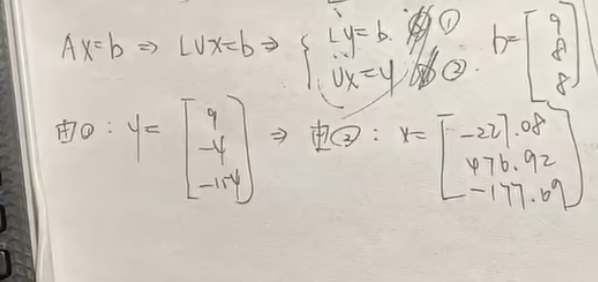 Ax=b ⇒ LUx=b ⇒ { Ly=b. ① Ux=y ②. b=[9 8 8]
由①: y=[9 -4 -154] ⇒ 由②: x=[-227.08 476.92 -177.69]